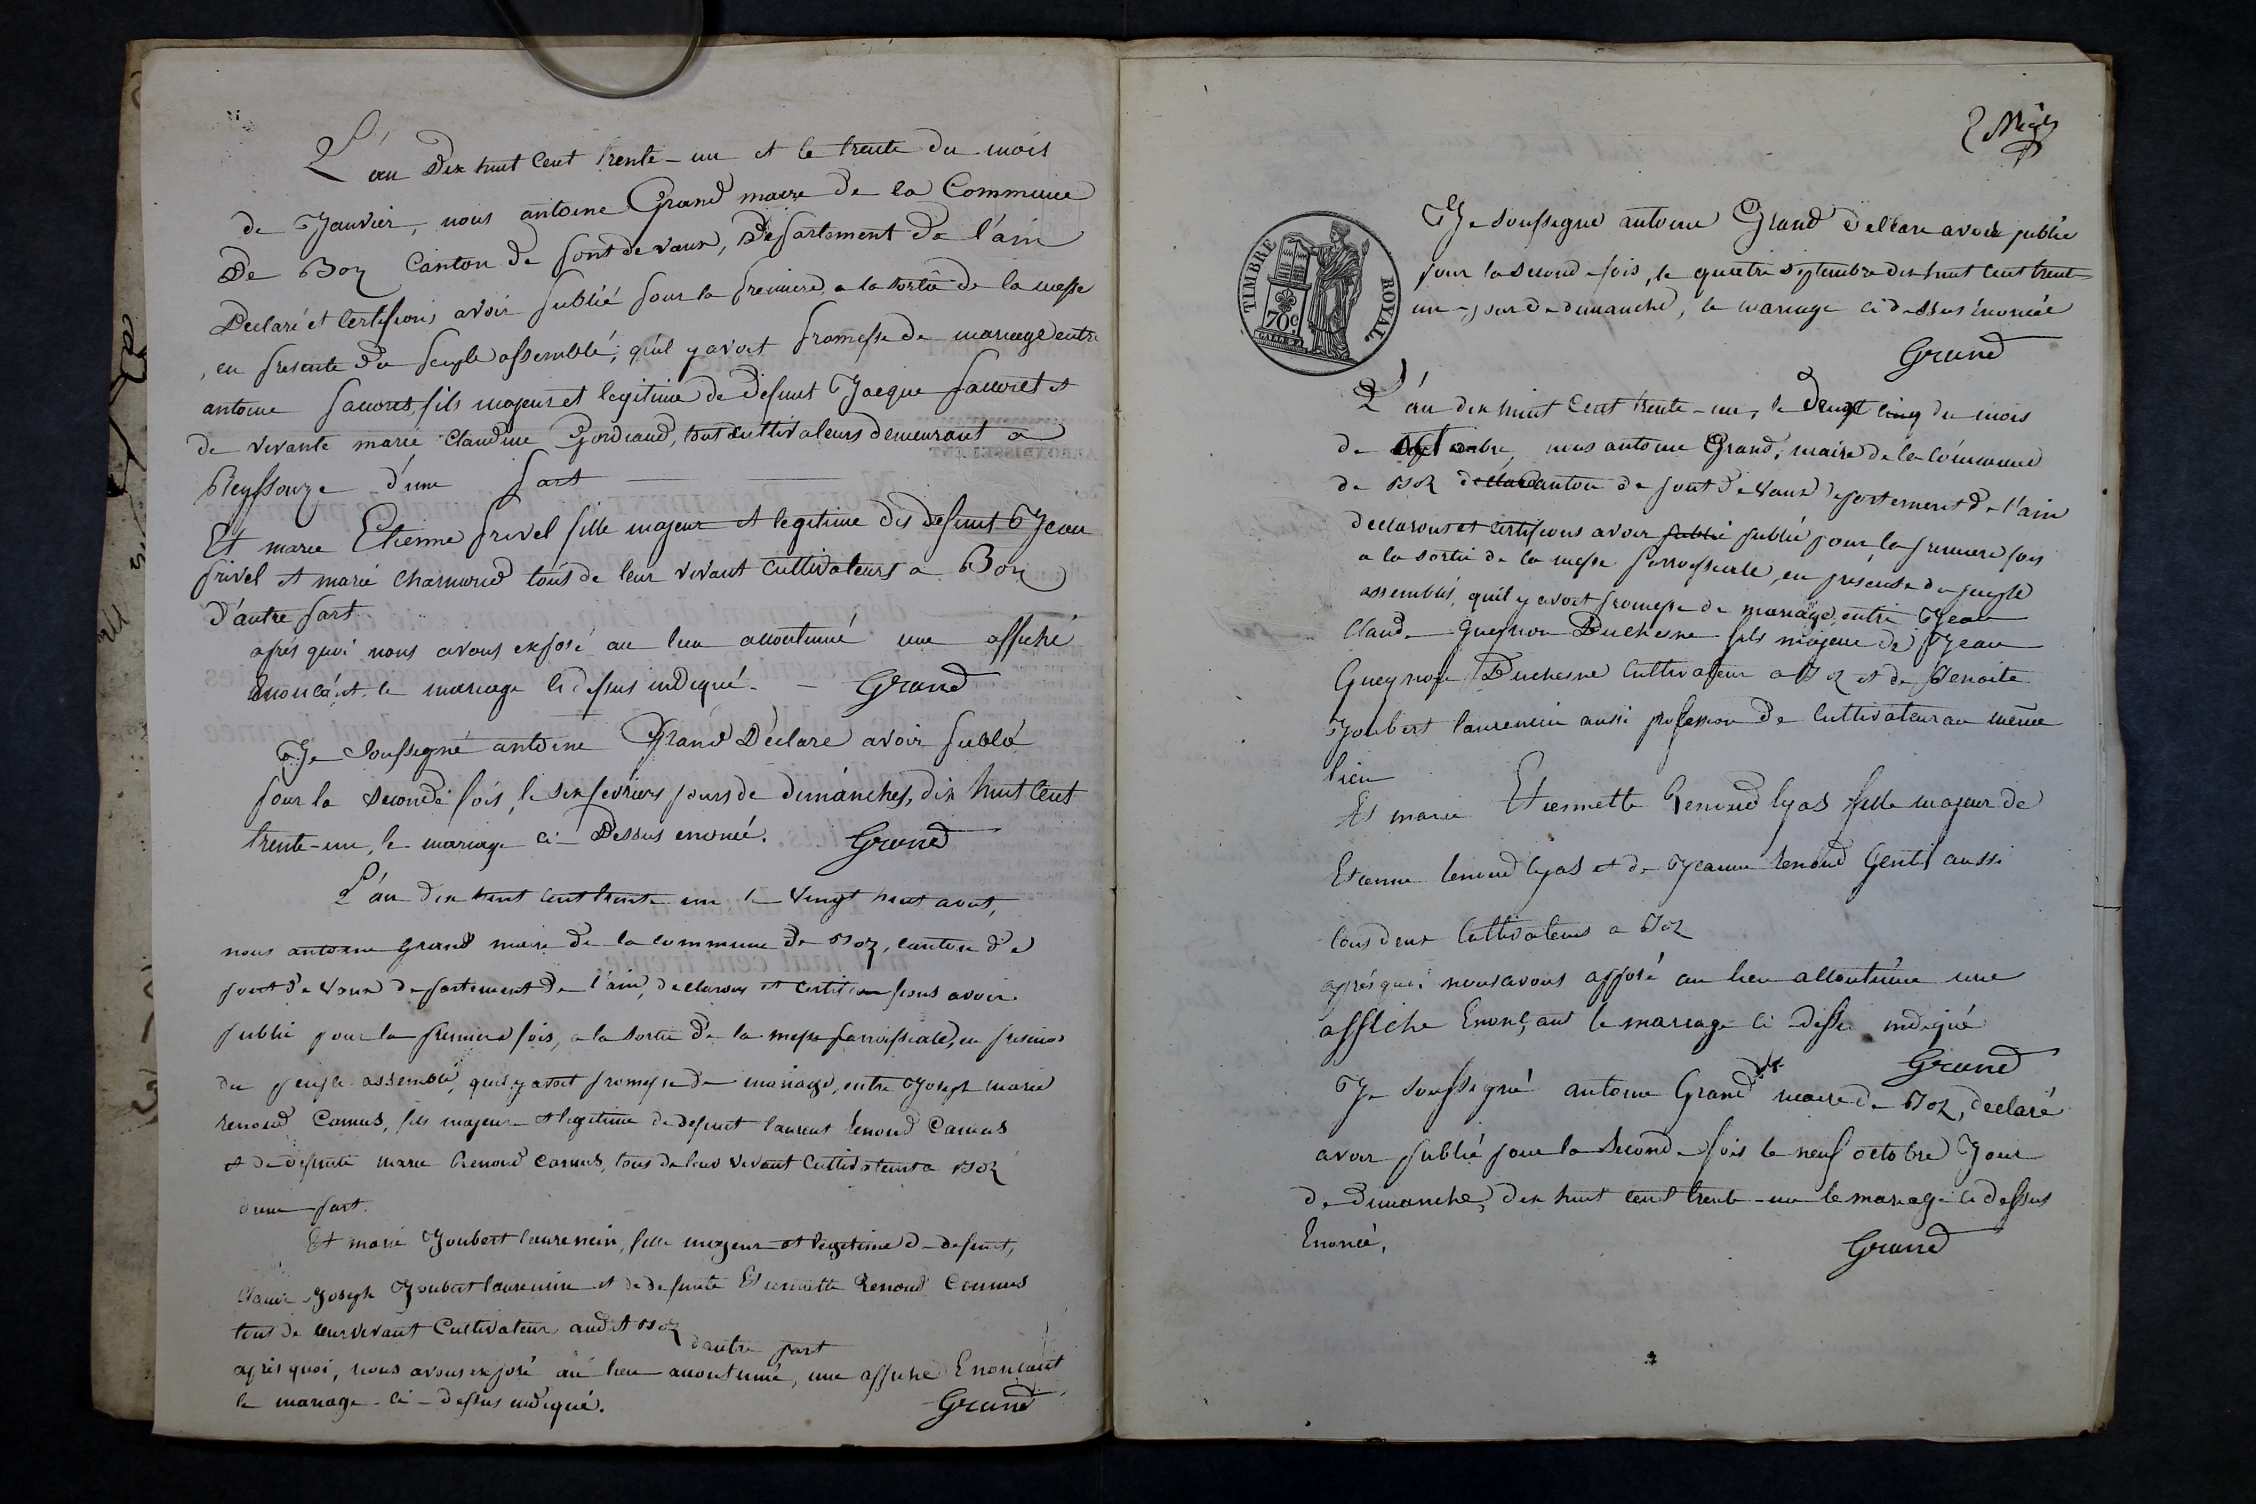 L'an Dix huit Cent trente-un et le trente du mois
de Janvier, nous antoine Grand maire de la Commune
De Boz Canton de pont de vaux, Département de l'ain
Declaré et Certifions avoir publié pour la premiere, a la sortie de la messe
, en presente du peuple assemblé, qu'il y avoit promesse de mariage entre
antoine pauvret, fils majeur et legitime de défunt Jacque pauvret et
de vivante marie Claudine Gordiand, tout Cultivateurs demeurant a
Reyssouze d'une part
Et marie Etienne privel fille majeur et legitime dis defunt Jean
privel et marie Chamond tous de leur vivant Cultivateurs a Boz
D'autre part
après quoi nous avons exposé au lieu accoutumé une affiché
Enoncant le mariage Ci dessus indiqué. - Grand
Je Soussigné antoine Grand Déclare avoir publié
pour la seconde fois, le six fevriers jours de dimanches, dix huit Cent
trente-un, le mariage ci-Dessus enoncé. Grand
L'an dix huit Cent trente un le Vingt huit aout,
nous antoine Grand maire de la commune de Boz, canton de
pont de Vaux departement de l'ain, declarons et certifions avoir
publié pour la premiere fois, a la sortie de la messe parroissiale, en presence
du peuple assemblé, qu'il y avoit promesse de mariage, entre Joseph marie
renoud Camus, fils majeur et legitime de defunt laurent renoud Camus
et de defunte marie Renoud Camus, tous de leur vivant Cultivateurs a Boz
d'une part.
Et marie Joubert laurencin, fille majeur et legitime de defunt,
Claude Joseph Joubert laurencin et de defunte Etiennette Renoud Camus
tous de leur vivant Cultivateur audit Boz
d'autre part
après quoi, nous avons exposé au lieu accoutumé, une affiche Enoncant
le mariage-Ci-dessus indiqué. Grand
TIMBRE ROYAL
70c
Je soussigné antoine Grand declare avoir publié
pour la second-fois, le quatre septembre dix huit cent trente-
un-jour de dimanche, le mariage ci dessus énoncée
Grand
L'an dix huit Cent trente-un, le deux du mois
de octobre, nous antoine Grand, maire de la Commune
de Boz canton de pont de Vaux departement de l'ain
declarons et certifions avoir publié publié pour la premiere fois
a la sortie de la messe parroissiale, en présence du peuple
assemblés, qu'il y avoit promesse de mariage, entre Jean
Claude Gueynon Duchesne fils majeur de Jean
Gueynon Duchesne Cultivateur a Boz et de Benoite
Joubert laurencin aussi profession de Cultivateur au même
lieu
Et marie Etiennette Renoud lyas fille majeur de
Etienne renoud lyas et de Jeanne Renoud Gentil aussi
tous deux Cultivateurs a Boz
après quoi nous avons apposé au lieu accoutumé une
affiche Enonçant le mariage Ci-dessu indiqué
Grand
Je soussigné antoine Grand maire de Boz, declaré
avoir publié pour la Second-fois le neuf octobre Jour
de dimanche, dix huit cent trente-un le mariage ci dessus
Enoncé, Grand